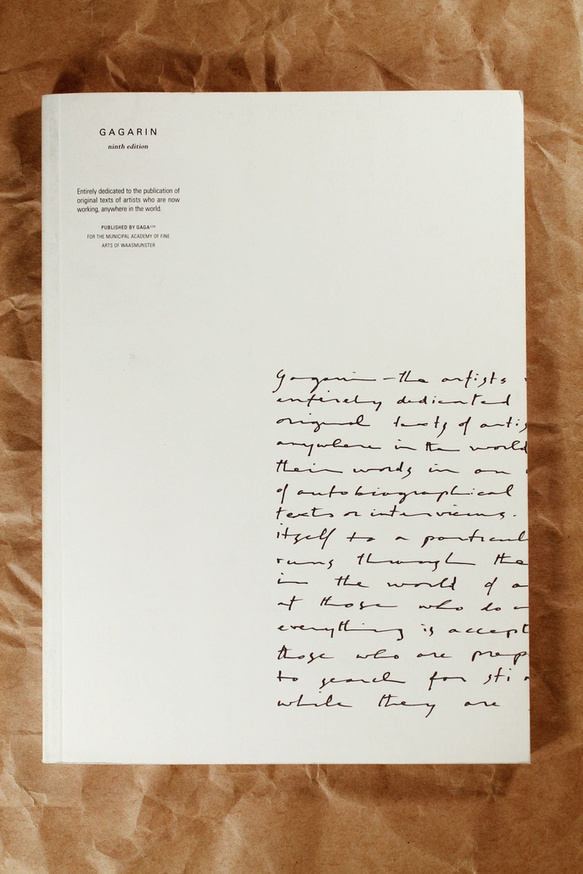 GAGARIN
ninth edition
Entirely dedicated to the publication of
original texts of artists who are now
working, anywhere in the world.
PUBLISHED BY GAGA
FOR THE MUNICIPAL ACADEMY OF FINE
ARTS OF WAASMUNSTER
Gagarin – the artists
entirely dedicated
original texts of artis
anywhere in the world
their words in an
of autobiographical
texts or interviews.
itself to a particul
runs through the
in the world of a
at those who do
everything is accept
those who are prep
to search for sti
while they are